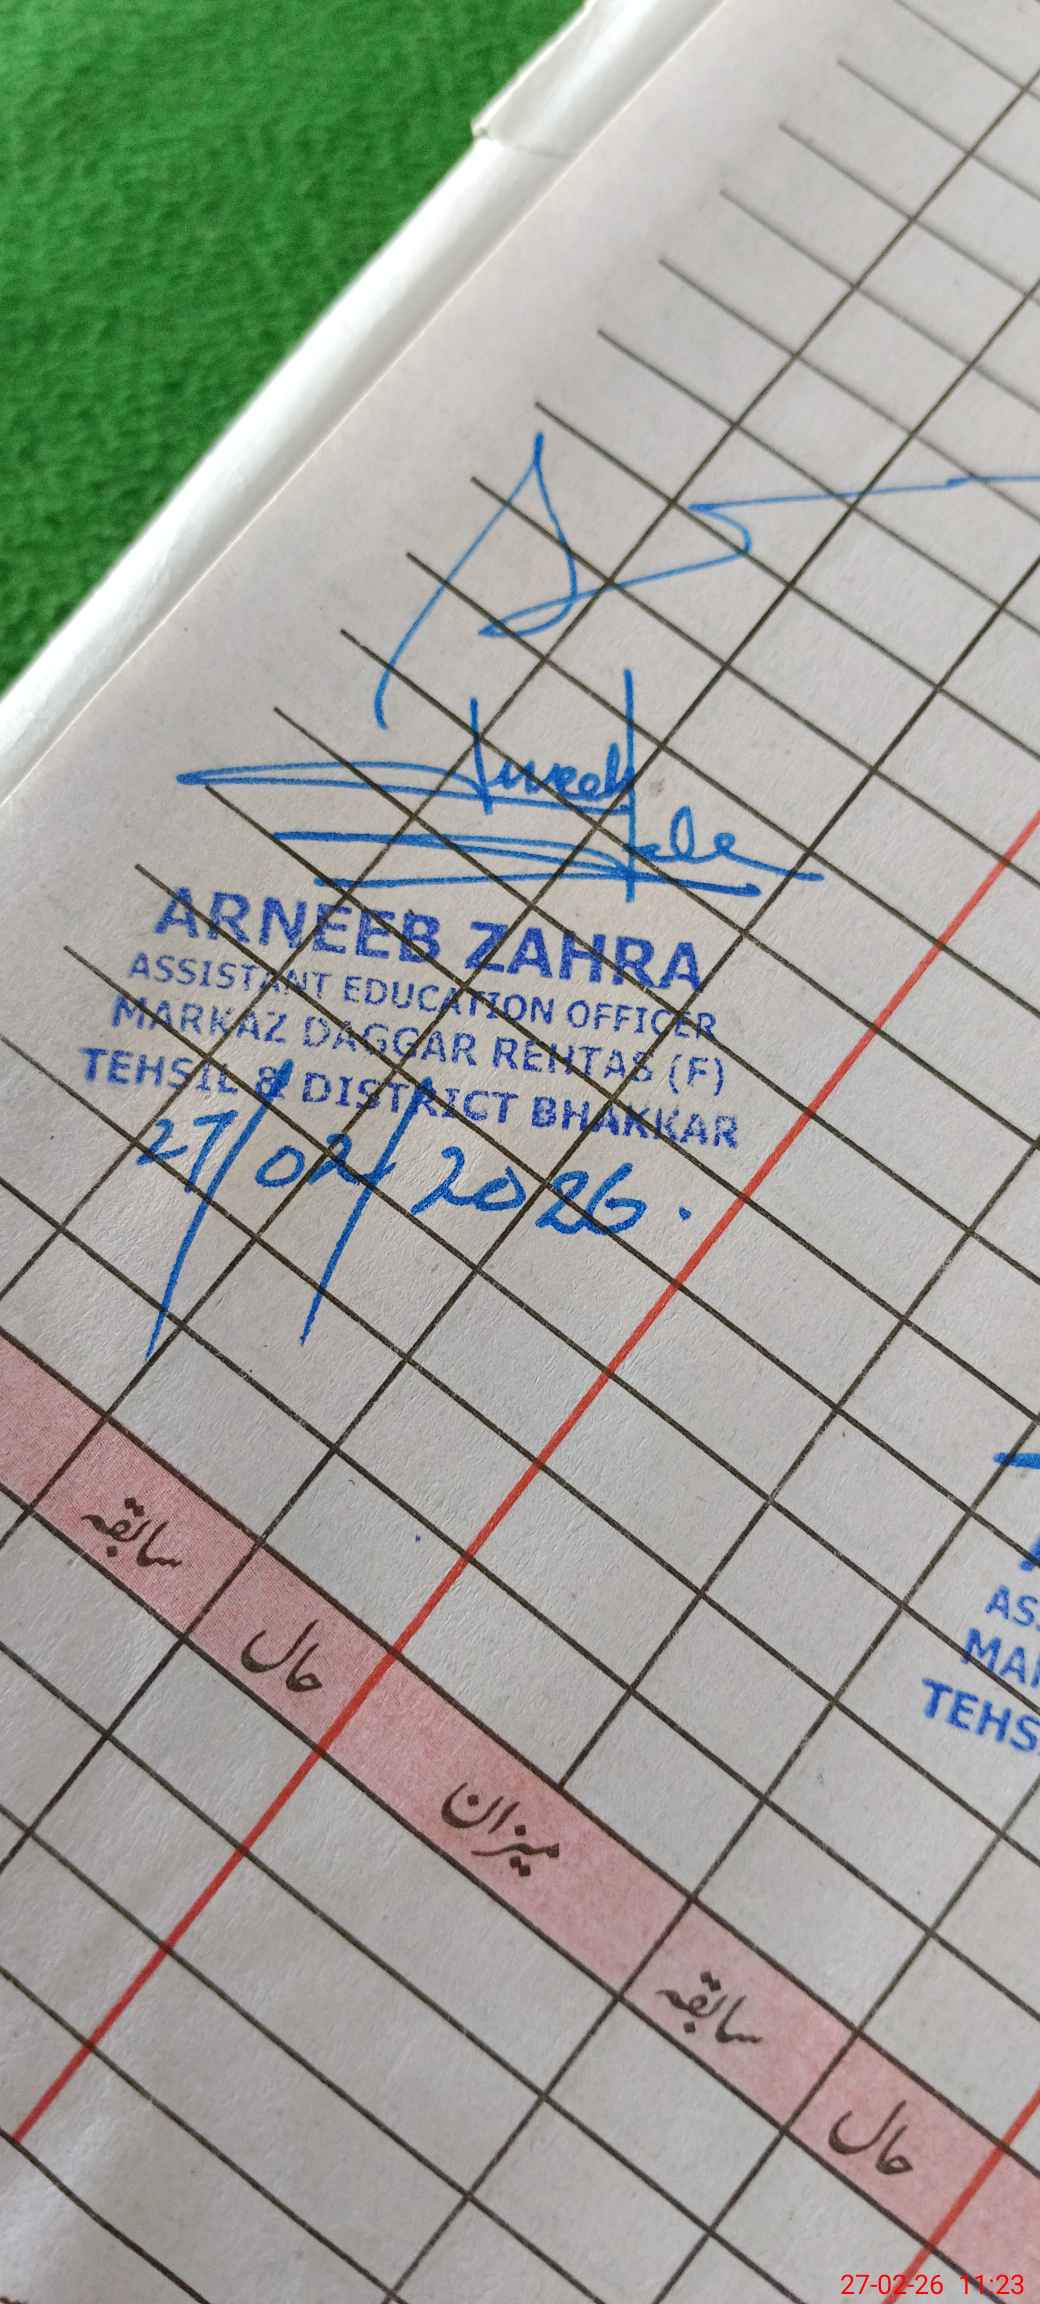 ARNEEB ZAHRA
ASSISTANT EDUCATION OFFICER
MARKAZ DAGGAR REHTAS (F)
TEHSIL & DISTRICT BHAKKAR
27/02/2026.
AS
MA
TEHS
سابقہ
حال
میزان
سابقہ
حال
27-02-26 11:23